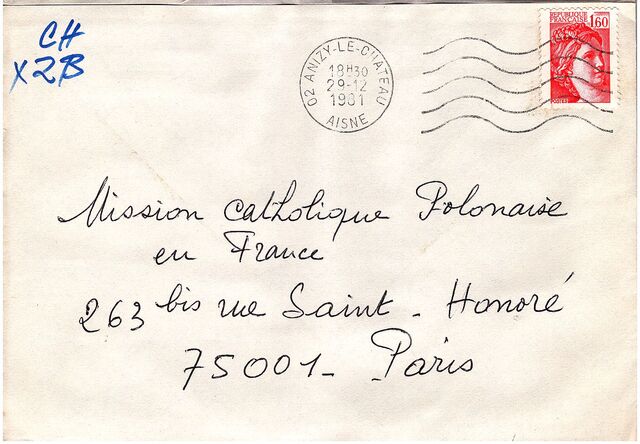 CH
X2B
02 ANIZY-LE-CHATEAU
18H30
29-12
1981
AISNE
REPUBLIQUE
FRANCAISE
1,60
Mission Catholique Polonaise
en France
263 bis rue Saint - Honoré
75001 - Paris